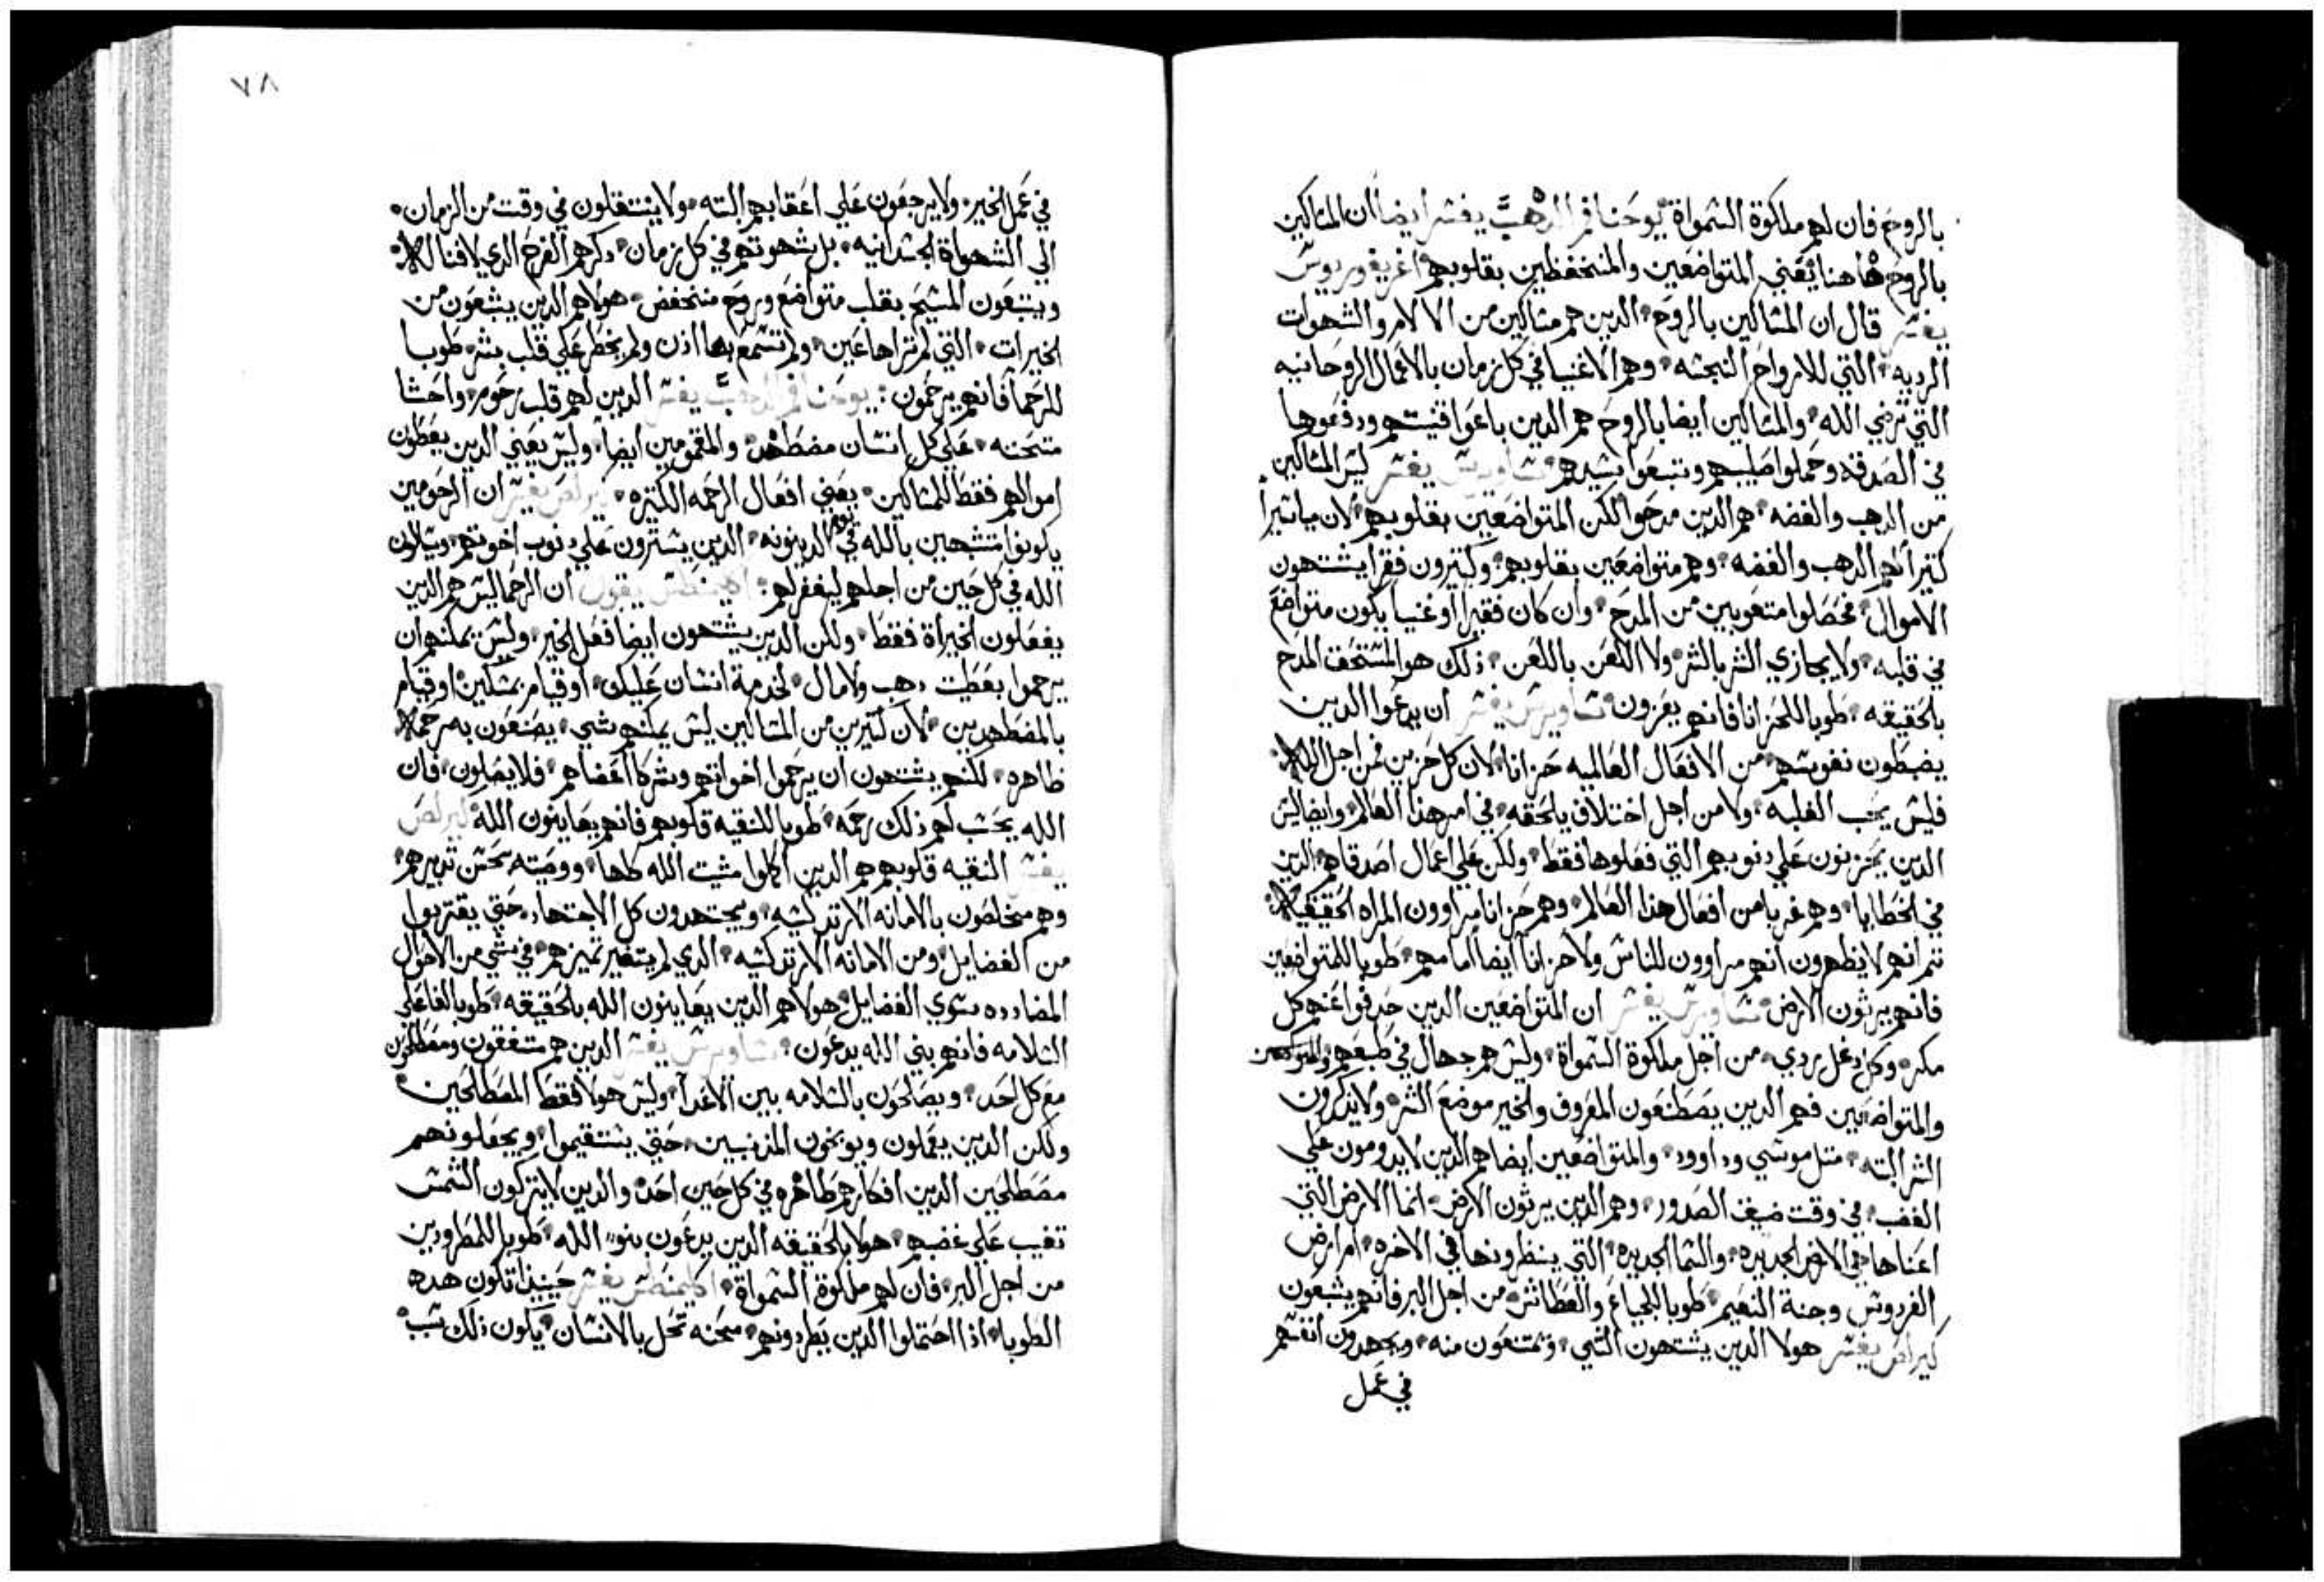 بالروح فان لهم ملكوة السمواة يوحنا فم الدهب يفسر ايضا ان المساكين
بالروح هاهنا يعني المتواضعين والمنخفظين بقلوبهم اغريغوريوس
يفسر قال ان المساكين بالروح الدين هم مساكين من الالام والشهوات
الرديه التي للارواح النجسه وهم الاغنيا في كل زمان بالاعمال الروحانيه
التي ترضي الله والمساكين ايضا بالروح هم الدين باعوا قنيتهم ودفعوها
في الصدقه وحملوا صليبهم وتبعوا سيدهم ساويرس يفسر ليس المساكين
من الدهب والفضه هم الدين مدحوا لكن المتواضعين بقلوبهم لان مياسيرا
كتيرا لهم الدهب والفضه وهم متواضعين بقلوبهم وكتيرون فقرا يشتهون
الاموال فحصلوا متعوبين من المدح وان كان فقيرا او غنيا يكون متواضع
في قلبه ولا يجازي الشر بالشر ولا اللعن باللعن ذلك هو المستحق المدح
بالحقيقه طوبا للحزانا فانهم يعزون ساويرس يفسر ان يدعوا الدين
يضبطون نفوسهم من الافعال العالميه حزانا لان كل حزين من اجل الله
فليس يحب الغلبه ولا من اجل اختلاف يلحقه في امر هذا العالم وايضا ليس
الدين يحزنون على دنوبهم التي فعلوها فقط ولكن على اعمال اصدقاهم الدين
في الخطايا وهم غربا من افعال هذا العالم وهم حزانا مراوون المراه الحقيقيه
تم انهم لا يظهرون انهم مراوون للناس ولا حزانا ايضا امامهم طوبا للمتواضعين
فانهم يرثون الارض ساويرس يفسر ان المتواضعين الدين حدفوا عنهم كل
مكر وكل دغل ردي من اجل ملكوة السمواة وليس هم جهال في طبعهم
والمتواضعين فهم الدين يصطنعون المعروف والخير موضع الشر ولا يدكرون
الشر البته متل موسي وداوود والمتواضعين ايضا هم الدين لا يدومون على
الغضب في وقت ضيق الصدور وهم الدين يرثون الارض انما الارض التي
اعناها هي الارض الجديده والسما الجديده التي ينظرونها في الاخره ام ارض
الفردوس وجنة النعيم طوبا للجياع والعطاش من اجل البر فانهم يشبعون
كيرلص يفسر هولا الدين يشتهون الشي وتمتنعون منه ويجهدون انفسهم
في عمل
٧٨
في عمل الخير ولا يرجعون علي اعقابهم البته ولا ينتقلون في وقت من الزمان
الي الشهواة الجسدانيه بل شهوتهم في كل زمان دكرهم الفرح الدي لا فنا له
ويتبعون المسيح بقلب متواضع وروح منخفض هولاهم الدين يشبعون من
الخيرات التي لم تراها عين ولم تسمع بها ادن ولم يخطر علي قلب بشر طوبا
للرحما فانهم يرحمون يوحنا فم الدهب يفسر الدين لهم قلب رحوم واحشا
متحننه علي كل انسان مضطهد والمقموعين ايضا وليس يعني الدين يعطون
اموالهم فقط للمساكين يعني افعال الرحمه الكتيره كيرلص يفسر ان الرحومين
يكونوا متشبهين بالله في يوم الدينونه الدين يسترون علي دنوب اخوتهم ويسالون
الله في كل حين من اجلهم ليغفر لهم اكليمنطس يقول ان الرحما ليس هم الدين
يفعلون الخيراة فقط ولكن الدين يشتهون ايضا فعل الخير وليس يمكنهم ان
يرحموا بعطيت دهب ولا مال لخدمة انسان عليك او قيام بمسكين او قيام
بالمضطهدين لان كتيرين من المساكين ليس يمكنهم شي يصنعون به رحمه
ظاهره لكنهم يشتهون ان يرحموا اخواتهم وشركا اعضاهم فلا يصلون فان
الله يحسب لهم ذلك رحمه طوبا للنقيه قلوبهم فانهم يعاينون الله كيرلص
يفسر النقيه قلوبهم هم الدين اكملوا مشيت الله كلها ووصيته بحسن تدبيرهم
وهم متخلصون بالامانه الارتدكسيه ويجتهدون كل الاجتهاد حتي يقتربوا
من الفضايل ومن الامانه الارتدكسيه الدي لم يتغير تميزهم في شي من الاحوال
المضادده سوي الفضايل هولاهم الدين يعاينون الله بالحقيقه طوبا لفاعلي
السلامه فانهم بني الله يدعون ساويرس يفسر الدين هم متفقون ومصطلحون
مع كل احد ويصلحون بالسلامه بين الاعدآ وليس هولا فقط المصطلحين
ولكن الدين يعملون ويوبخون المذنبين حتي يستقيموا ويجعلونهم
مصطلحين الدين افكارهم طاهره في كل حين احد والدين لا يتركون الشمس
تغيب علي غضبهم هولا بالحقيقه الدين يدعون بنو الله طوبا للمطرودين
من اجل البر فان لهم ملكوة السمواة اكليمنطس يفسر حينيذ تكون هده
الطوبا اذا احتملوا الدين يطردونهم محنه تحل بالانسان يكون ذلك سبب